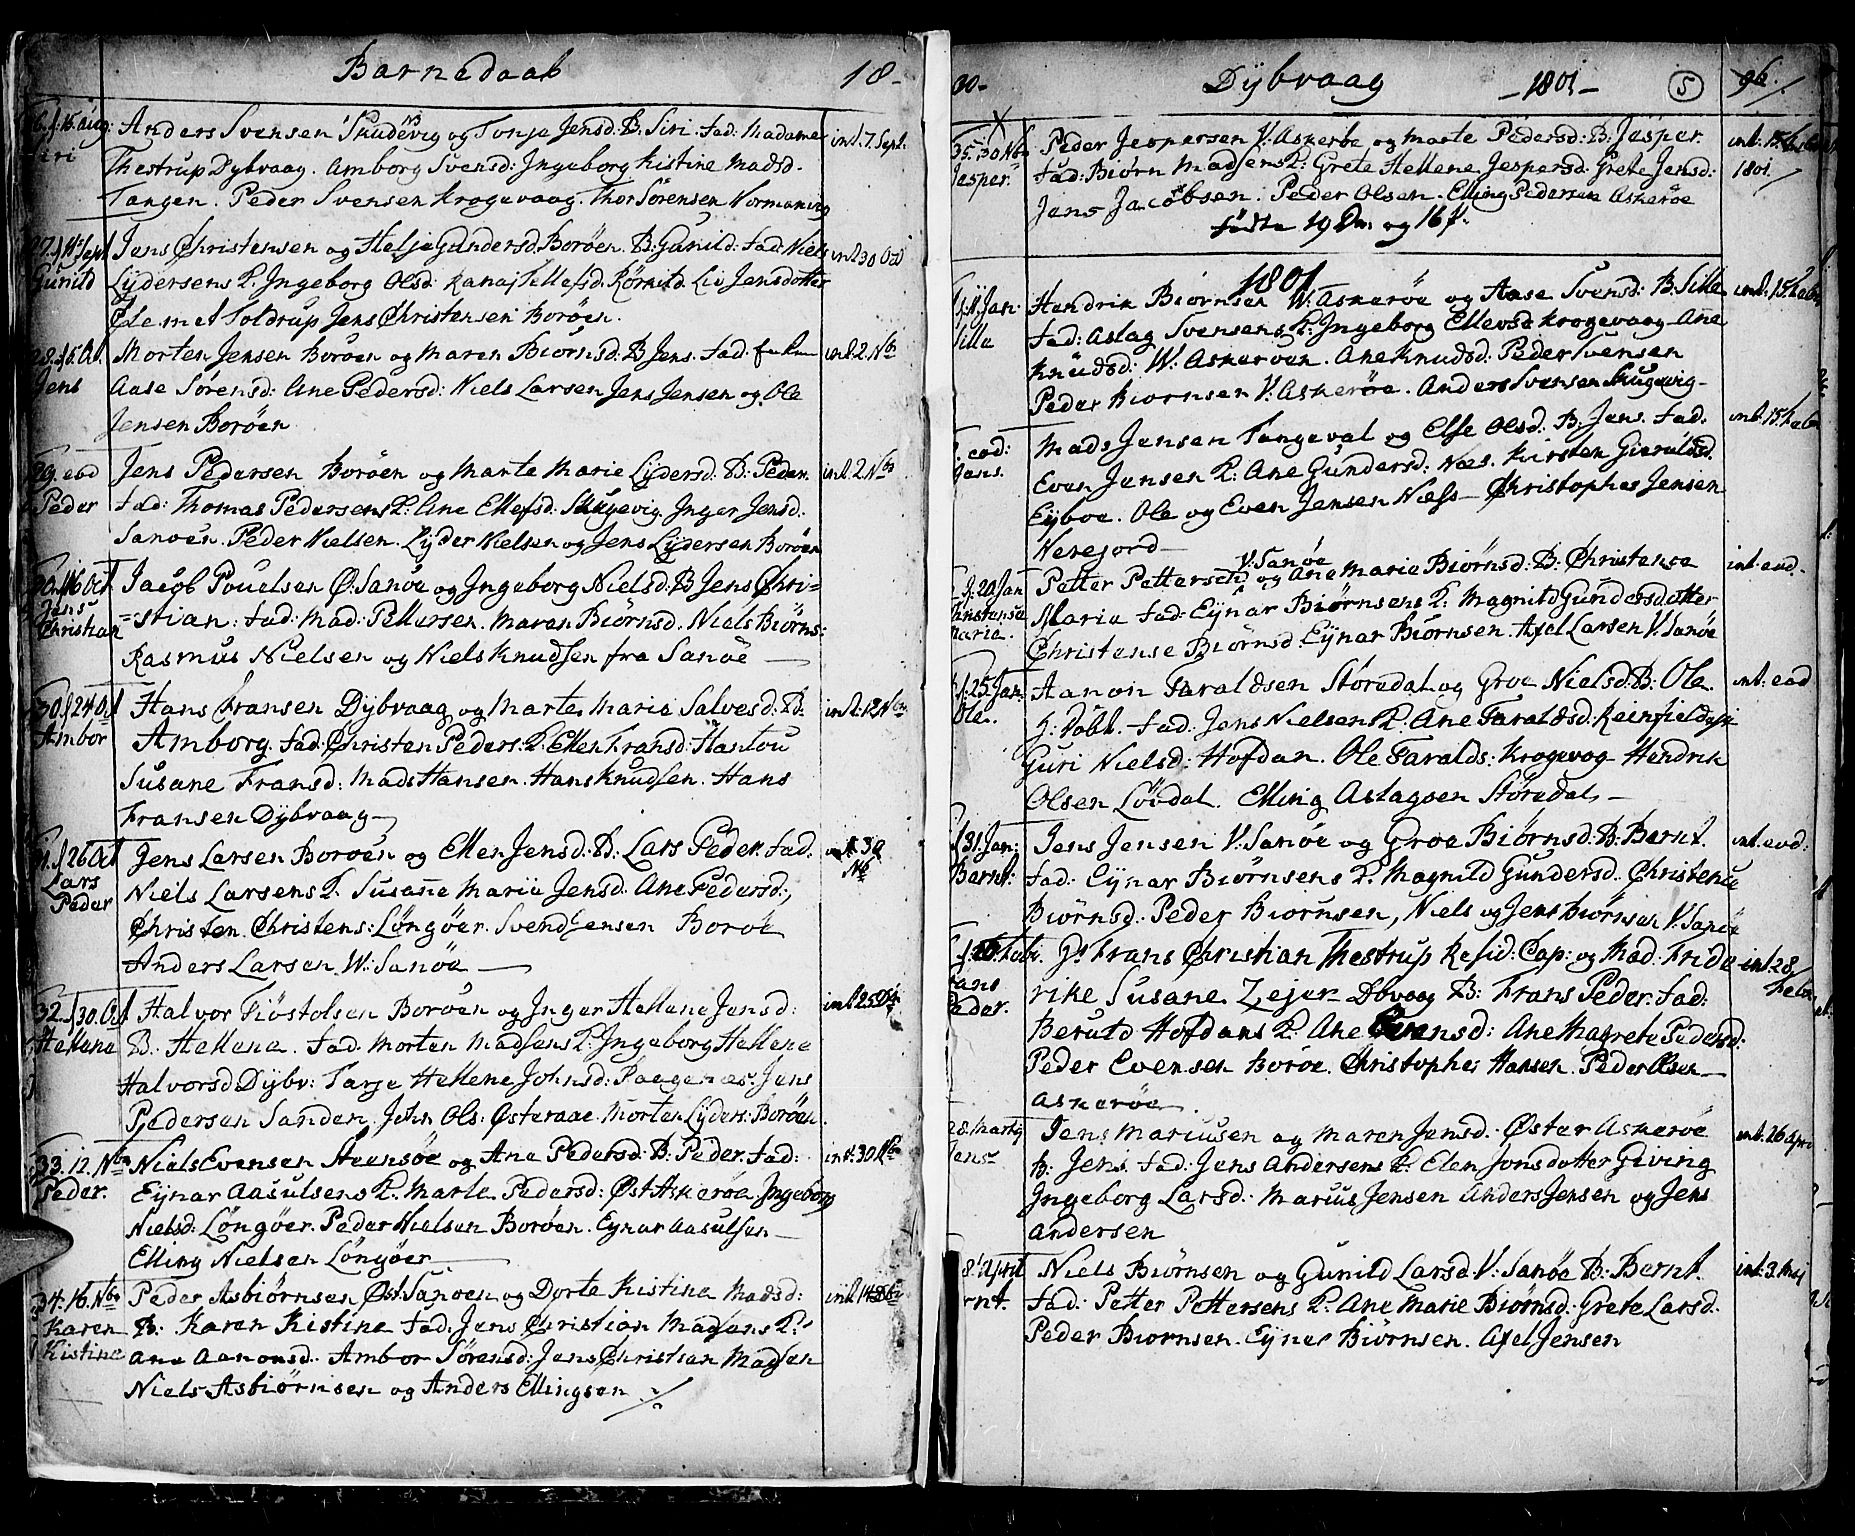 Barnedaab 18-
26. f. 16. aug: Anders Svensen Skudevig og Tonje Jensd: B: Siri. fad: Madame int. 7. Sept.
Siri Thestrup Dybvaag. Amborg Svensd: Ingeborg Kistine Madsd.
Tangen. Peder Svensen Krogevaag. Thor Sörensen
27. f. Sept Jens Christensen og Helje Gundersd. Boröen. B: Gunild: fad: Niels int 30 Oct
Gunild Lydersens K. Ingeborg Olsd. Liv Jensdotter
Toldrup Jens Christensen Boröen.
28. f. 5. Oct. Morten Jensen Boröen og Maren Biörnsd: B Jens. fad: int. 2. Nbr
Jens Aase Sörensd: Ane Pedersd: Niels Larsen Jens Jensen og Ole
Jensen Boröen
29. eod Jens Pedersen Boröen og Marte Marie Lydersd: B: Peder. int. 2. Nbr
Peder fad: Thomas Pedersens K. Ane Ellefsd. Skugevig. Inger Jensd.
Sanöen. Peder Nielsen. Lyder Nielsen og Jens Lydersen Boröen
30. 16 Oct Jacob Pouelsen Ö. Sanöe og Ingeborg Nielsd: B Jens Chri-
Jens =stian: fad: Mad: Pettersen. Maren Biörnsd. Niels Biörns:
Christian Rasmus Nielsen og Niels Knudsen fra Sanöe
30. f 24 Oct Hans Fransen Dybvaag og Marte Maria Salvesd: B. int. 12. Nbr
Ambor Amborg. fad: Christen Peders: K. Ellen Fransd: Hantou
Susane Fransd: Mads Hansen. Hans Knudsen. Hans
Fransen Dybvaag
31. f 26 Oct Jens Larsen Boröen og Ellen Jensd: B: Lars Peder. fad. int. 30
Lars Niels Larsens K. Susane Maria Jensd. Ane Pedersd:, Nb
Peder Christen Christens: Löngöer. Svend Jensen Boröe
Anders Larsen W: Sanöe
32. f 30. Oct Halvor Tiöstolsen Boröen og Inger Hellene Jensd: int. 25
Hellene B. Hellene. fad. Morten Madsens K. Ingeborg Hellene
Halvorsd Dybv: Tarje Hellene Johnsd: Jens
Pedersen Sanden. John Ols. Österaae. Morten Lyders: Boröen
33. 12. Nbr Niels Evensen Steensöe og Ane Pedersd. B: Peder. fad: int. 30. Nbr
Peder. Eynar Aasulsens K. Marte Pedersd: Öst Askeröe Ingeborg
Nielsd. Löngöer. Peder Nielsen Boröen. Eynar Aasulsen
Elling Nielsen Löngöer
34. 16. Nbr Peder Asbiörnsen Öst. Sanöen og Dorte Kistine Madsd:
Karen B: Karen Kistine fad. Jens Christian Madsens K.
Kistine Ane Aanonsd. Ambor Sörensd: Jens Christian Madsen
Niels Asbiörnsen og Anders Ellingsen
00- Dybvaag -1801- 5 96.
35. 30 Nb Peder Jespersen V: Askeröe og Marte Pedersd: B: Jesper. int. 15.
Jesper. fad: Biörn Madsens K: Grete Hellene Jespersd: Grete Jensd: 1801.
Jens Jacobsen. Peder Olsen. Elling Pedersen Askeröe
födte 19 Dr. og 16 P.
1801
Jan: Hendrik Biörnsen W: Askeröe og Aase Svensd: B: Sille int. 15.
Sille fad: Aslag Svensens K. Ingeborg Ellevsd Krogevaag Ane
Knudsd: W: Askeröen. Ane Knudsd: Peder Svensen
Peder Biornsen V: Askeröe. Anders Svensen Skugevig-
eod: Mads Jensen Tangeval og Else Olsd. B: Jens. fad. int. 15.
Jens. Even Jensens K: Ane Gundersd: Næs. Kirsten Gieruldsd.
Eyboe. Ole og Even Jensen Næss- Christopher Jensen
Nerejord-
f. 20 Jan Petter Pettersen V. Sanöe og Ane Marie Biörnsd: B: Christense int. eod.
Christense Maria fad: Eynar Biörnsens K: Magnild Gundersdotter
Maria. Christense Biörnsd: Eynar Biörnsen. Axel Larsen V: Sanöe
f. 25 Jan: Aanon Taraldsen Störedal og Groe Nielsd: B: Ole int: eod
Ole. fad. Jens Nielsens K. Ane Taraldsd:
Guri Nielsd: Hofdan. Ole Taralds: Krogevog Hendrik
Olsen Lövdal. Elling Aslagsen Störedal-
f 31. Jan: Jens Jensen V: Sanöe og Groe Biörnsd: B: Bernt. int. eod:
Bernt: fad: Eynar Biörnsens K. Magnild Gundersd. Christense
Biörnsd: Peder Biornsen, Niels og Jens Biörnsen V. Sanöe
Hr Frans Christian Thestrup Resid: Cap: og Mad. Fride int. 28
Frans rike Susane Zejer Dbvaag B: Frans Peder. fad: Febr
Peder. Hofdans K. Ane Evensd: Ane Magrete Pedersd.
Peder Evensen Boröe. Christopher Hansen. Peder Olsen
Askeröe.
28. Marty Jens Mariusen og Maren Jensd. Öster Askeröe int. 26 April
Jens B: Jens fad: Jens Andersens K: Elen Jonsdotter Geving
Ingeborg Larsd. Marius Jensen Anders Jensen og Jens
Andersen
8' April Niels Biörnsen og Gunild Larsd V: Sanöe B: Bernt. int: 3. Maj
Bernt. fad: Petter Pettersens K. Ane Marie Biörnsd: Grete Larsd.
Peder Biornsen. Eynar Biörnsen. Axel Jensen